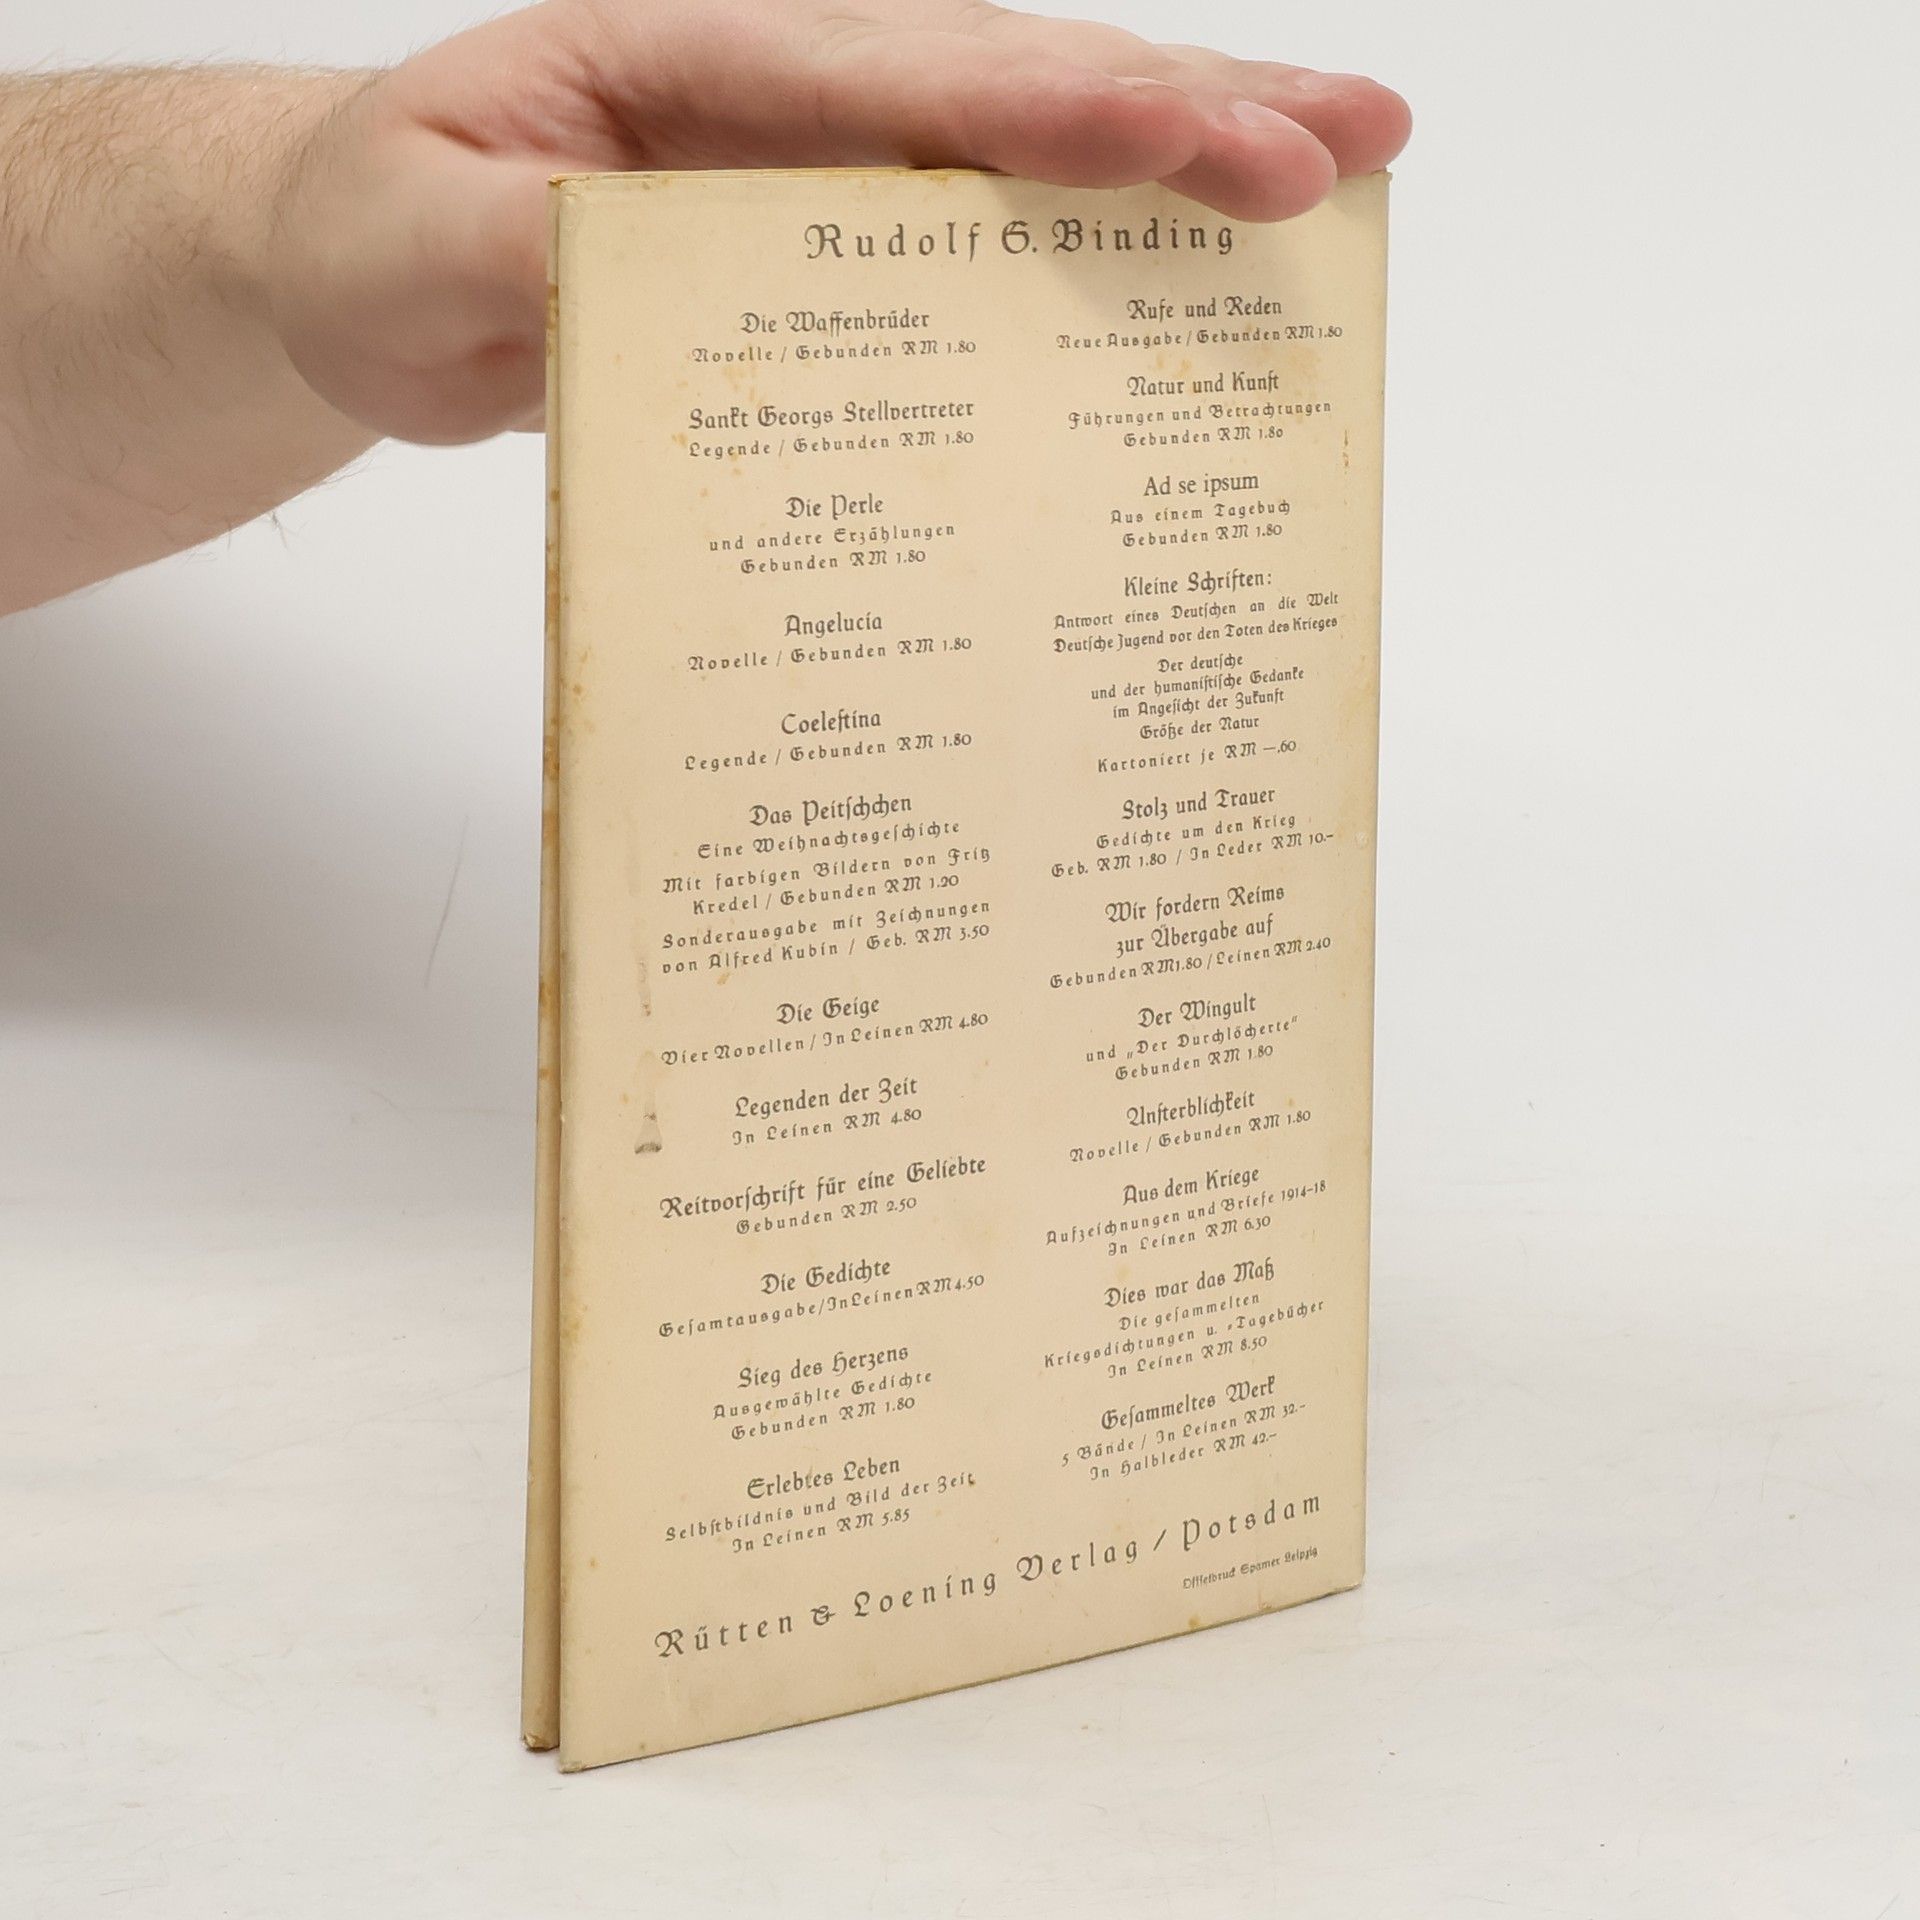 Rudolf G. Binding
Die Waffenbrüder
Novelle / Gebunden RM 1.80
Sankt Georgs Stellvertreter
Legende / Gebunden RM 1.80
Die Perle
und andere Erzählungen
Gebunden RM 1.80
Angelucia
Novelle / Gebunden RM 1.80
Coeleſtina
Legende / Gebunden RM 1.80
Das Peitſchchen
Eine Weihnachtsgeſchichte
Mit farbigen Bildern von Fritz
Kredel / Gebunden RM 1.20
Sonderausgabe mit Zeichnungen
von Alfred Kubin / Geb. RM 3.50
Die Geige
Vier Novellen / In Leinen RM 4.80
Legenden der Zeit
In Leinen RM 4.80
Reitvorſchrift für eine Geliebte
Gebunden RM 2.50
Die Gedichte
Geſamtausgabe / In Leinen RM 4.50
Sieg des Herzens
Ausgewählte Gedichte
Gebunden RM 1.80
Erlebtes Leben
Selbſtbildnis und Bild der Zeit
In Leinen RM 5.85
Rufe und Reden
Neue Ausgabe / Gebunden RM 1.80
Natur und Kunſt
Führungen und Betrachtungen
Gebunden RM 1.80
Ad se ipsum
Aus einem Tagebuch
Gebunden RM 1.80
Kleine Schriften:
Antwort eines Deutſchen an die Welt
Deutſche Jugend vor den Toten des Krieges
Der deutſche
und der humaniſtiſche Gedanke
im Angeſicht der Zukunft
Größe der Natur
Kartoniert je RM —.60
Stolz und Trauer
Gedichte um den Krieg
Geb. RM 1.80 / In Leder RM 10.–
Wir fordern Reims
zur Übergabe auf
Gebunden RM 1.80 / Leinen RM 2.40
Der Wingult
und „Der Durchlöcherte“
Gebunden RM 1.80
Unſterblichkeit
Novelle / Gebunden RM 1.80
Aus dem Kriege
Aufzeichnungen und Briefe 1914–18
In Leinen RM 6.30
Dies war das Maß
Die geſammelten
Kriegsdichtungen u. -Tagebücher
In Leinen RM 8.50
Geſammeltes Werk
5 Bände / In Leinen RM 32.–
In Halbleder RM 42.–
Rütten & Loening Verlag / Potsdam
Offſetdruck Spamer Leipzig